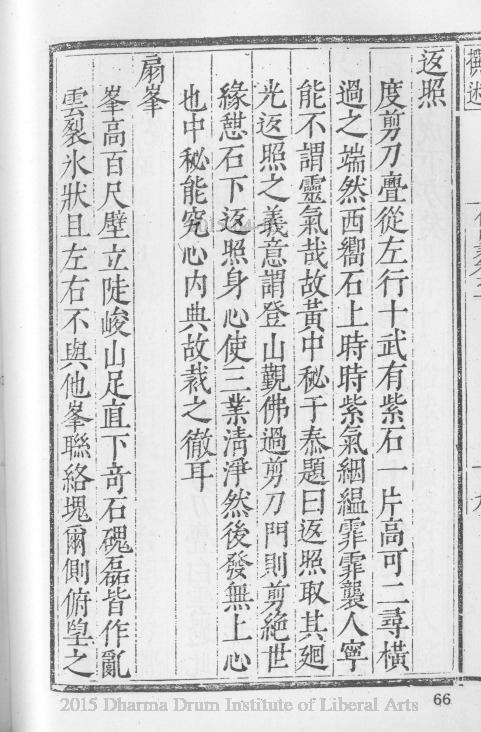 返照
度剪刀舋從左行十武有紫石一片高可二尋橫
過之端然西嚮石上時時紫氣絪縕霏霏襲人寧
能不謂靈氣哉故黃中秘于忝題曰返照取其廻
光返照之義意謂登山覲佛過剪刀門則剪絶世
緣憇石下返照身心使三業清淨然後發無上心
也中秘能究心內典故裁之徹耳
扇峯
峯高百尺壁立陡峻山足直下奇石磈磊皆作亂
雲裂氷狀且左右不與他峯聯絡塊爾側俯望之
66
2015 Dharma Drum Institute of Liberal Arts